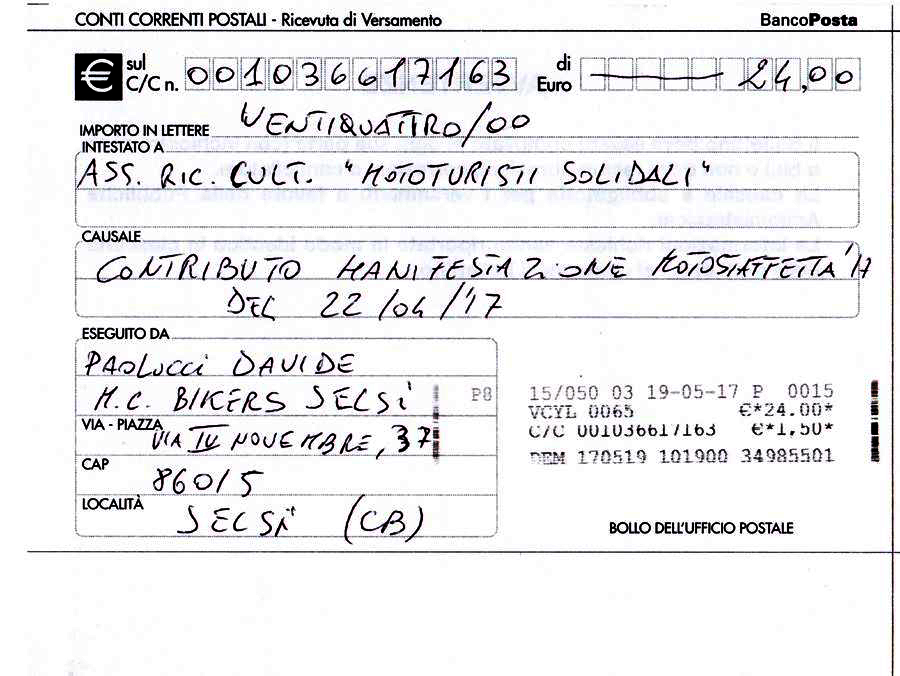 CONTI CORRENTI POSTALI - Ricevuta di Versamento BancoPosta
€ sul C/C n. 001036617163 di Euro 24,00
IMPORTO IN LETTERE VENTIQUATTRO/00
INTESTATO A
ASS. RIC. CULT. "MOTOTURISTI SOLIDALI"
CAUSALE
CONTRIBUTO MANIFESTAZIONE MOTOSTAFFETTA
DEL 22/04/'17
ESEGUITO DA
PAOLUCCI DAVIDE
M.C. BIKERS JELSI
VIA - PIAZZA
VIA IV NOVEMBRE, 37
CAP
86015
LOCALITÀ
JELSI (CB)
P8
15/050 03 19-05-17 P 0015
VCYL 0065 €*24.00*
C/C 001036617163 €*1,50*
DEM 170519 101900 34985501
BOLLO DELL'UFFICIO POSTALE